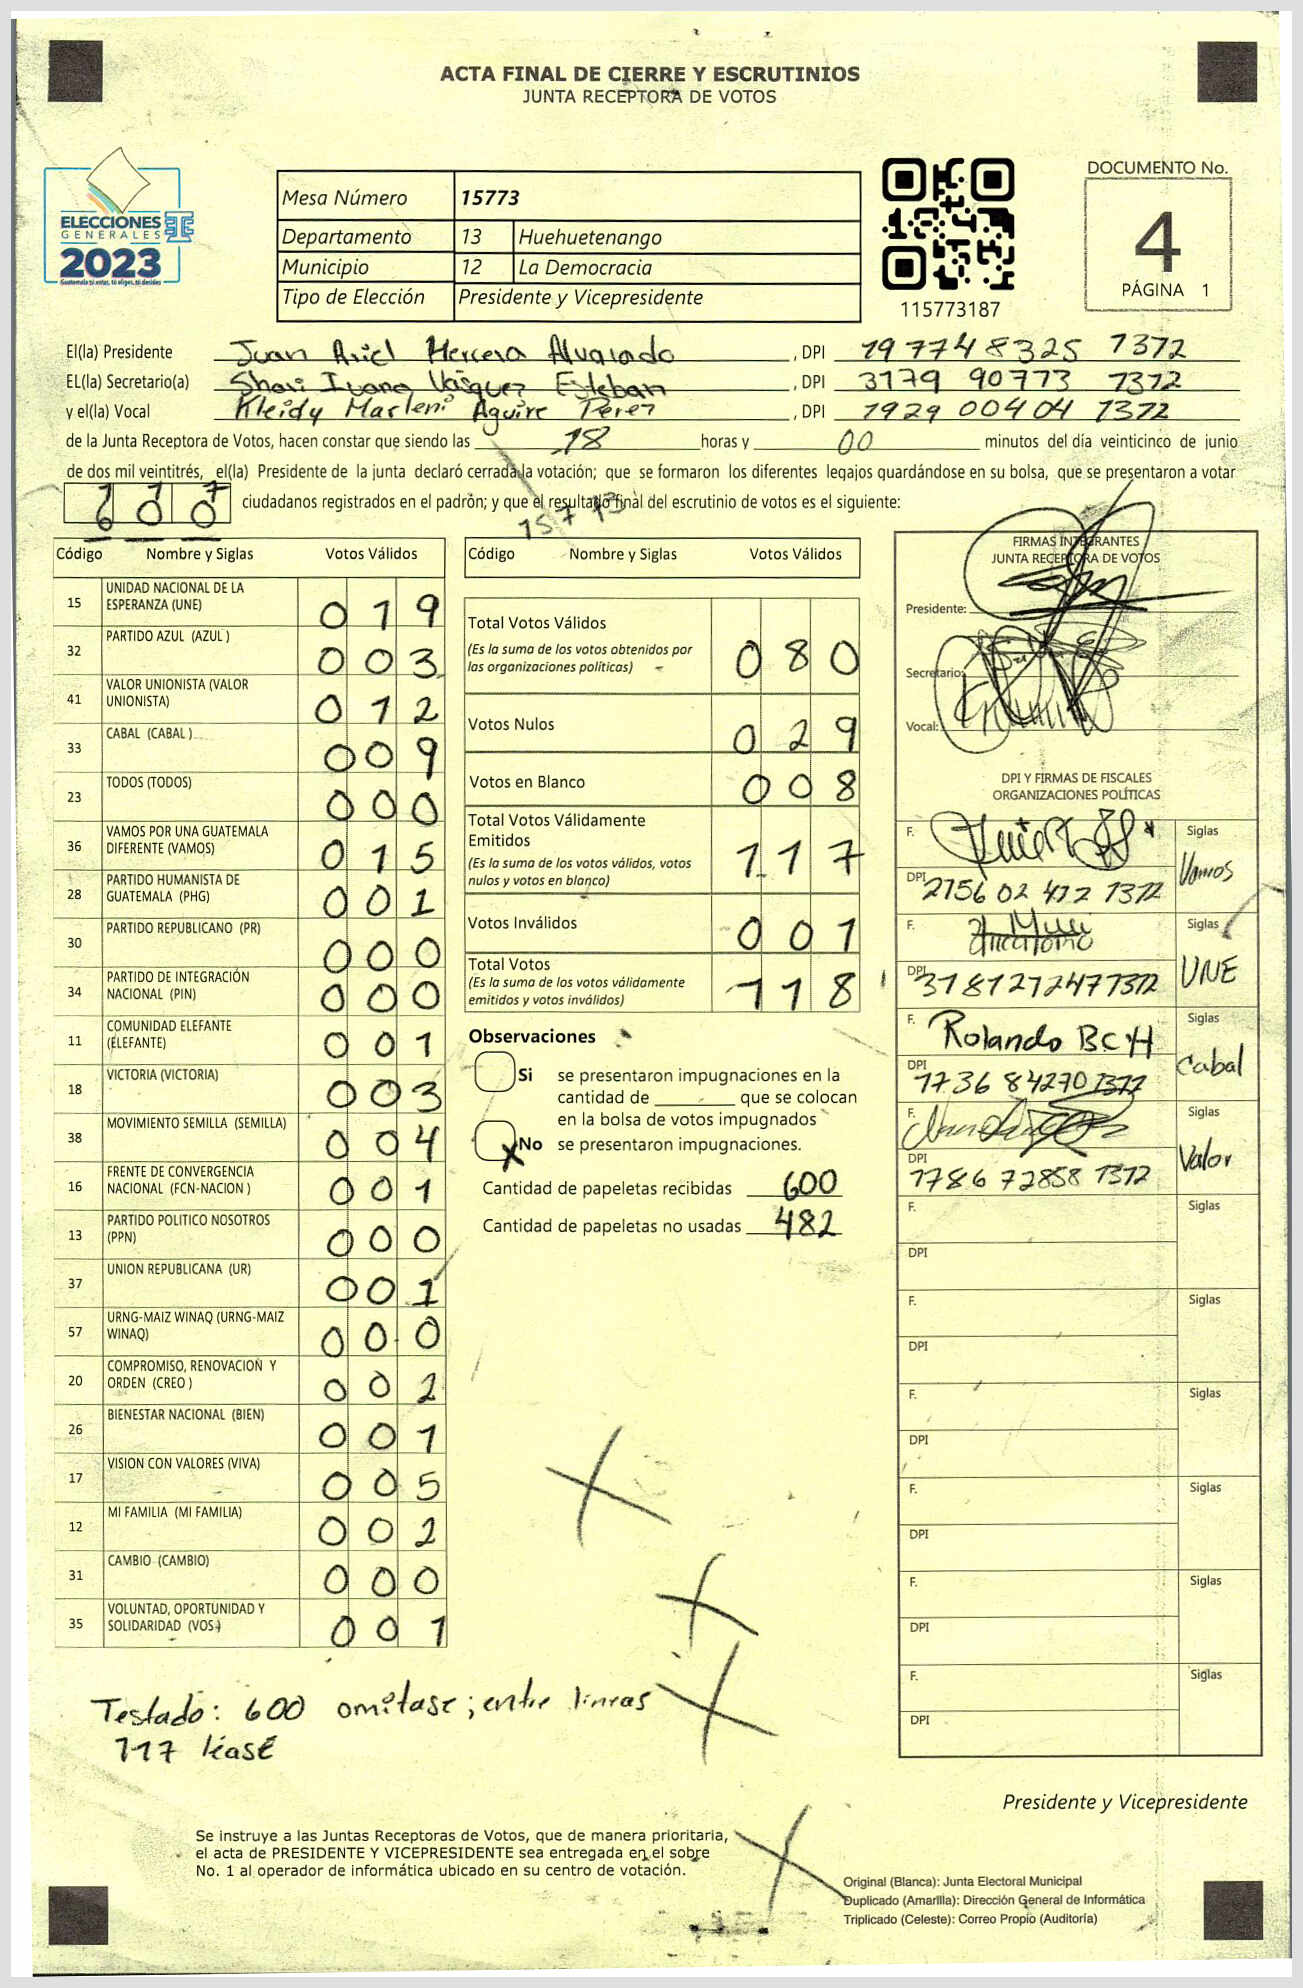 ACTA FINAL DE CIERRE Y ESCRUTINIOS
JUNTA RECEPTORA DE VOTOS
ELECCIONES
GENERALES
2023
Guatemala tú votas, tú eliges, tú decides
Mesa Número 15773
Departamento 13 Huehuetenango
Municipio 12 La Democracia
Tipo de Elección Presidente y Vicepresidente
115773187
DOCUMENTO No.
4
PÁGINA 1
El(la) Presidente Juan Ariel Herrera Alvarado , DPI 197748325 1372
EL(la) Secretario(a) Shari Ivana Vásquez Esteban , DPI 3179 90773 1312
y el(la) Vocal Kleidy Marleni Aguire Perez , DPI 1929 00404 1312
de la Junta Receptora de Votos, hacen constar que siendo las 18 horas y 00 minutos del día veinticinco de junio
de dos mil veintitrés, el(la) Presidente de la junta declaró cerrada la votación; que se formaron los diferentes legajos quardándose en su bolsa, que se presentaron a votar
117
600 ciudadanos registrados en el padrón; y que el resultado final del escrutinio de votos es el siguiente:
15773
Código Nombre y Siglas Votos Válidos
15 UNIDAD NACIONAL DE LA ESPERANZA (UNE) 019
32 PARTIDO AZUL (AZUL ) 003
41 VALOR UNIONISTA (VALOR UNIONISTA) 012
33 CABAL (CABAL ) 009
23 TODOS (TODOS) 000
36 VAMOS POR UNA GUATEMALA DIFERENTE (VAMOS) 015
28 PARTIDO HUMANISTA DE GUATEMALA (PHG) 001
30 PARTIDO REPUBLICANO (PR) 000
34 PARTIDO DE INTEGRACIÓN NACIONAL (PIN) 000
11 COMUNIDAD ELEFANTE (ELEFANTE) 001
18 VICTORIA (VICTORIA) 003
38 MOVIMIENTO SEMILLA (SEMILLA) 004
16 FRENTE DE CONVERGENCIA NACIONAL (FCN-NACION ) 001
13 PARTIDO POLITICO NOSOTROS (PPN) 000
37 UNION REPUBLICANA (UR) 001
57 URNG-MAIZ WINAQ (URNG-MAIZ WINAQ) 000
20 COMPROMISO, RENOVACION Y ORDEN (CREO ) 002
26 BIENESTAR NACIONAL (BIEN) 001
17 VISION CON VALORES (VIVA) 005
12 MI FAMILIA (MI FAMILIA) 002
31 CAMBIO (CAMBIO) 000
35 VOLUNTAD, OPORTUNIDAD Y SOLIDARIDAD (VOS) 001
Código Nombre y Siglas Votos Válidos
Total Votos Válidos 080
(Es la suma de los votos obtenidos por
las organizaciones políticas)
Votos Nulos 029
Votos en Blanco 008
Total Votos Válidamente
Emitidos 117
(Es la suma de los votos válidos, votos
nulos y votos en blanco)
Votos Inválidos 001
Total Votos 118
(Es la suma de los votos válidamente
emitidos y votos inválidos)
Observaciones
Si se presentaron impugnaciones en la
cantidad de ________ que se colocan
en la bolsa de votos impugnados
X No se presentaron impugnaciones.
Cantidad de papeletas recibidas 600
Cantidad de papeletas no usadas 482
FIRMAS INTEGRANTES
JUNTA RECEPTORA DE VOTOS
Presidente:
Secretario:
Vocal:
DPI Y FIRMAS DE FISCALES
ORGANIZACIONES POLÍTICAS
F. Siglas Vamos
DPI 2756 02 412 1312
F. Siglas UNE
DPI 3181272471312
F. Rolando BCH Siglas Cabal
DPI 1736 84270 1312
F. Siglas Valor
DPI 1786 72858 1312
F. Siglas
DPI
F. Siglas
DPI
F. Siglas
DPI
F. Siglas
DPI
F. Siglas
DPI
F. Siglas
DPI
Testado: 600 omitase; entre lineas
117 léase
Presidente y Vicepresidente
Se instruye a las Juntas Receptoras de Votos, que de manera prioritaria,
el acta de PRESIDENTE Y VICEPRESIDENTE sea entregada en el sobre
No. 1 al operador de informática ubicado en su centro de votación.
Original (Blanca): Junta Electoral Municipal
Duplicado (Amarilla): Dirección General de Informática
Triplicado (Celeste): Correo Propio (Auditoría)